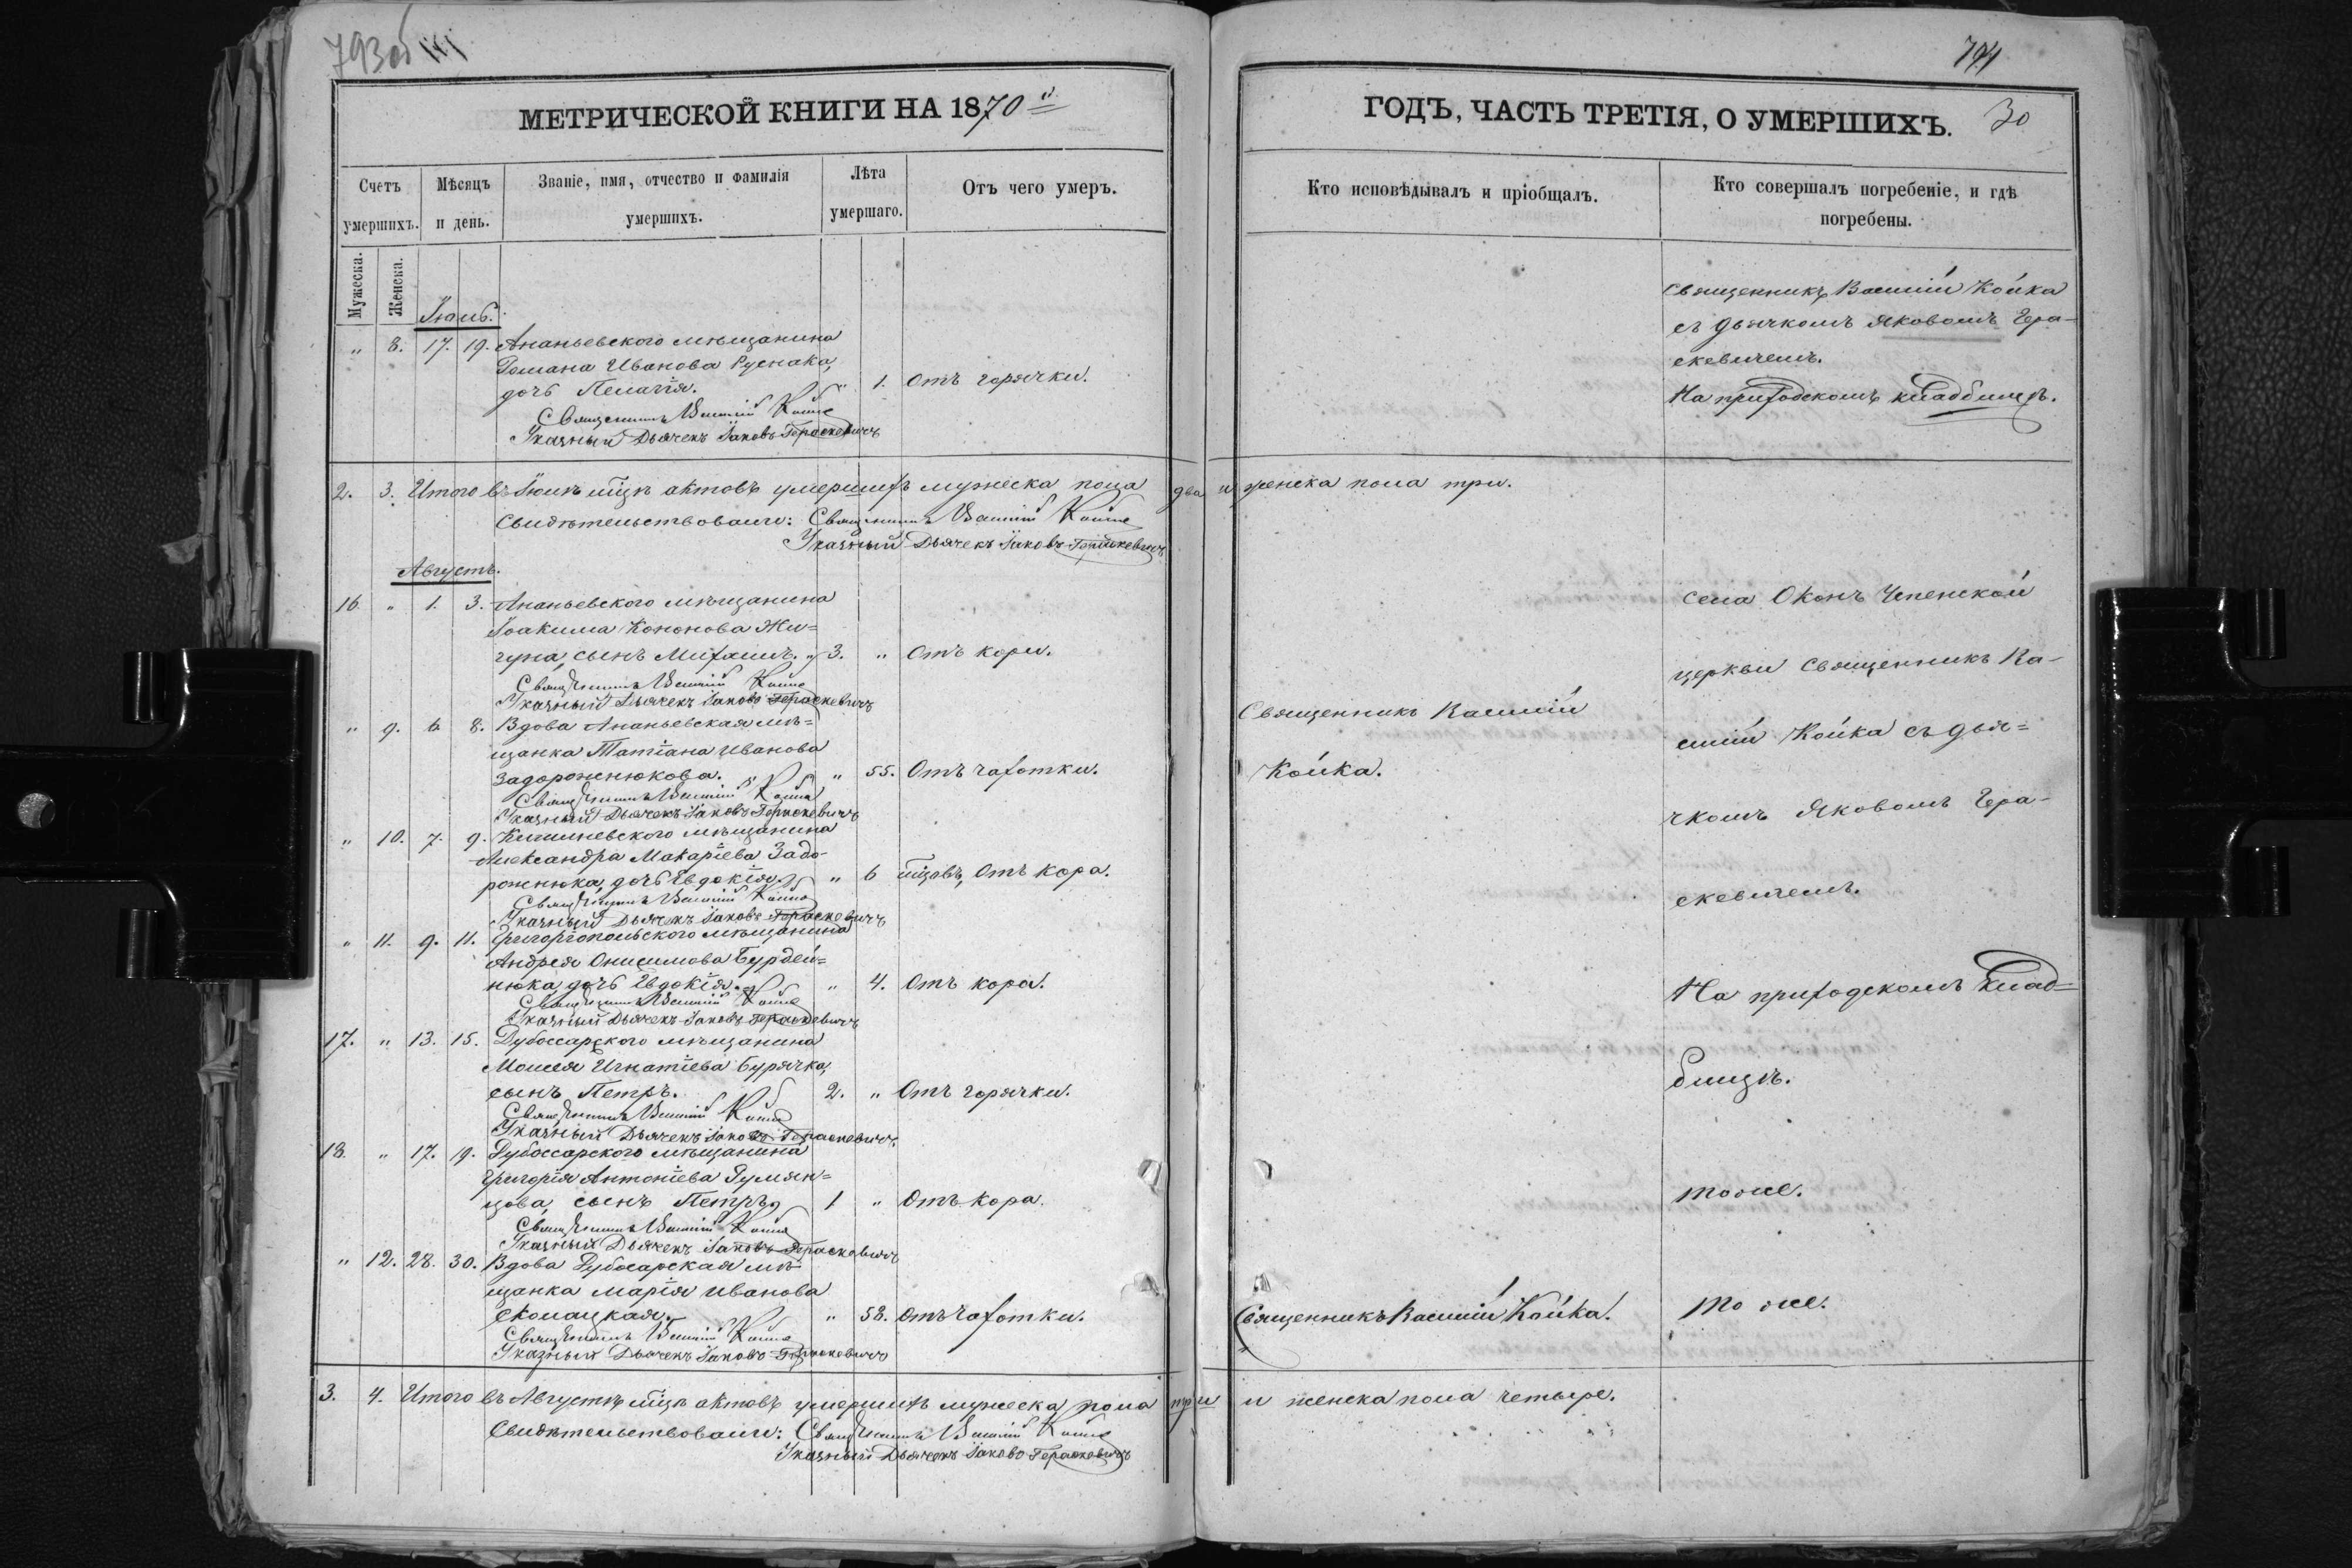 793об
794
МЕТРИЧЕСКОЙ КНИГИ НА 1870й
ГОДЪ, ЧАСТЬ ТРЕТІЯ, О УМЕРШИХЪ.
30
Счетъ умершихъ.
Мѣсяцъ и день.
Званіе, имя, отчество и фамилія
умершихъ.
Лѣта
умершаго.
Отъ чего умеръ.
Кто исповѣдывалъ и пріобщалъ.
Кто совершалъ погребеніе, и гдѣ
погребены.
Мужеска.
Женска.
Іюль.
„ 8. 17. 19. Ананьевского мѣщанина
Романа Иванова Руснака,
дочь Пелагія. „ 1. Отъ горячки.
Священникъ Василій Койка
Указный Дьячекъ Іаковъ Гераскевичъ
Священникъ Василій Койка
съ дьячкомъ Яковомъ Гера-
скевичемъ.
На приходскомъ кладбищѣ.
2. 3. Итого въ Іюлѣ мцѣ актовъ умершихъ мужеска пола два и женска пола три.
Свидѣтельствовали: Священникъ Василій Койка
Указный Дьячекъ Іаковъ Гераскевичъ
Августъ.
16. „ 1. 3. Ананьевского мѣщанина
Іоакима Кононова Жи-
гуна, сынъ Михаилъ. 3. „ Отъ кори.
Священникъ Василій Койка
Указный Дьячекъ Іаковъ Гераскевичъ
„ 9. 6 8. Вдова Ананьевская мѣ-
щанка Татіана Иванова
Задорожнюкова. „ 55. Отъ чахотки.
Священникъ Василій Койка
Указный Дьячекъ Іаковъ Гераскевичъ
„ 10. 7. 9. Кишиневского мѣщанина
Александра Макаріева Задо-
рожнюка, дочь Евдокія. „ 6 мцовъ, Отъ кора.
Священникъ Василій Койка
Указный Дьячекъ Іаковъ Гераскевичъ
„ 11. 9. 11. Григоріопольского мѣщанина
Андрея Онисимова Бурдей-
нюка, дочь Евдокія. „ 4. Отъ кора.
Священникъ Василій Койка
Указный Дьячекъ Іаковъ Гераскевичъ
17. „ 13. 15. Дубоссарского мѣщанина
Моисея Игнатіева Бурячка,
сынъ Петръ. 2. „ Отъ горячки.
Священникъ Василій Койка
Указный Дьячекъ Іаковъ Гераскевичъ
18. „ 17. 19. Дубоссарского мѣщанина
Григорія Антоніева Румян-
цова, сынъ Петръ 1 „ Отъ кора.
Священникъ Василій Койка
Указный Дьячекъ Іаковъ Гераскевичъ
„ 12. 28. 30. Вдова Дубосарская мѣ-
щанка Марія Иванова
„ 58. Отъ чахотки.
Священникъ Василій Койка
Указный Дьячекъ Іаковъ Гераскевичъ
Священникъ Василій
Койка.
Священникъ Василій Койка.
села Оконъ Успенской
церкви Священникъ Ва-
силій Койка съ дья-
чкомъ Яковомъ Гера-
скевичемъ.
На приходскомъ клад-
бищѣ.
тоже.
то же.
3. 4. Итого въ Августѣ мцѣ актовъ умершихъ мужеска пола три и женска пола четыре.
Свидѣтельствовали: Священникъ Василій Койка
Указный Дьячекъ Іаковъ Гераскевичъ